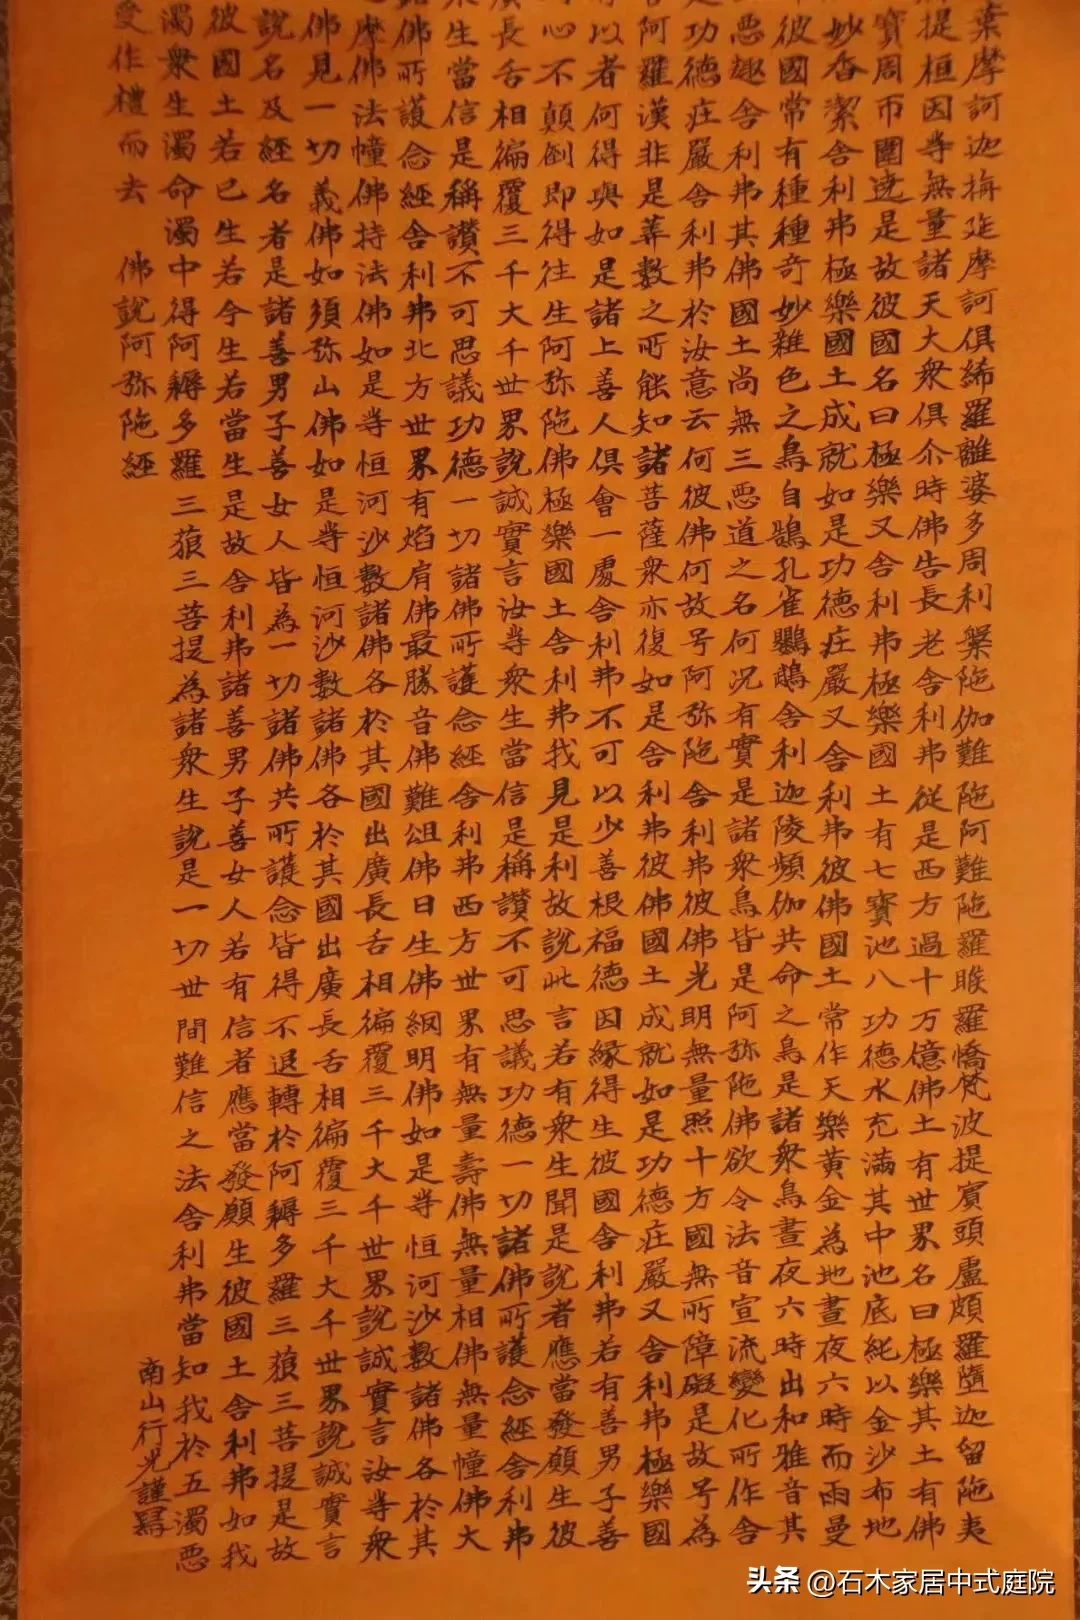 葉摩訶迦旃延摩訶俱絺羅離婆多周利槃陁伽難陁阿難陁羅睺羅憍梵波提賓頭盧頗羅墮迦留陁夷
提桓因等無量諸天大衆俱尒時佛告長老舍利弗從是西方過十万億佛土有世界名曰極樂其土有佛
寶周帀圍遶是故彼國名曰極樂又舍利弗極樂國土有七寶池八功德水充滿其中池底純以金沙布地
妙香潔舍利弗極樂國土成就如是功德莊嚴又舍利弗彼佛國土常作天樂黃金為地晝夜六時而雨曼
彼國常有種種奇妙雜色之鳥白鵠孔雀鸚鵡舍利迦陵頻伽共命之鳥是諸衆鳥晝夜六時出和雅音其
惡趣舍利弗其佛國土尚無三惡道之名何況有實是諸衆鳥皆是阿弥陁佛欲令法音宣流變化所作舍
功德莊嚴舍利弗於汝意云何彼佛何故号阿弥陁舍利弗彼佛光明無量照十方國無所障礙是故号為
阿羅漢非是筭數之所能知諸菩薩衆亦復如是舍利弗彼佛國土成就如是功德莊嚴又舍利弗極樂國
以者何得與如是諸上善人俱會一處舍利弗不可以少善根福德因緣得生彼國舍利弗若有善男子善
心不顛倒即得往生阿弥陁佛極樂國土舍利弗我見是利故說此言若有衆生聞是說者應當發願生彼
長舌相徧覆三千大千世界說誠實言汝等衆生當信是稱讚不可思議功德一切諸佛所護念經舍利弗
生當信是稱讚不可思議功德一切諸佛所護念經舍利弗西方世界有無量壽佛無量相佛無量幢佛大
佛所護念經舍利弗北方世界有焰肩佛最勝音佛難沮佛日生佛網明佛如是等恒河沙數諸佛各於其
摩佛法幢佛持法佛如是等恒河沙數諸佛各於其國出廣長舌相徧覆三千大千世界說誠實言汝等衆
佛見一切義佛如須弥山佛如是等恒河沙數諸佛各於其國出廣長舌相徧覆三千大千世界說誠實言
說名及經名者是諸善男子善女人皆為一切諸佛共所護念皆得不退轉於阿耨多羅三藐三菩提是故
彼國土若已生若今生若當生是故舍利弗諸善男子善女人若有信者應當發願生彼國土舍利弗如我
濁衆生濁命濁中得阿耨多羅三藐三菩提為諸衆生說是一切世間難信之法舍利弗當知我於五濁惡
受作禮而去 佛說阿弥陁經
南山行光謹寫
头条 @石木家居中式庭院